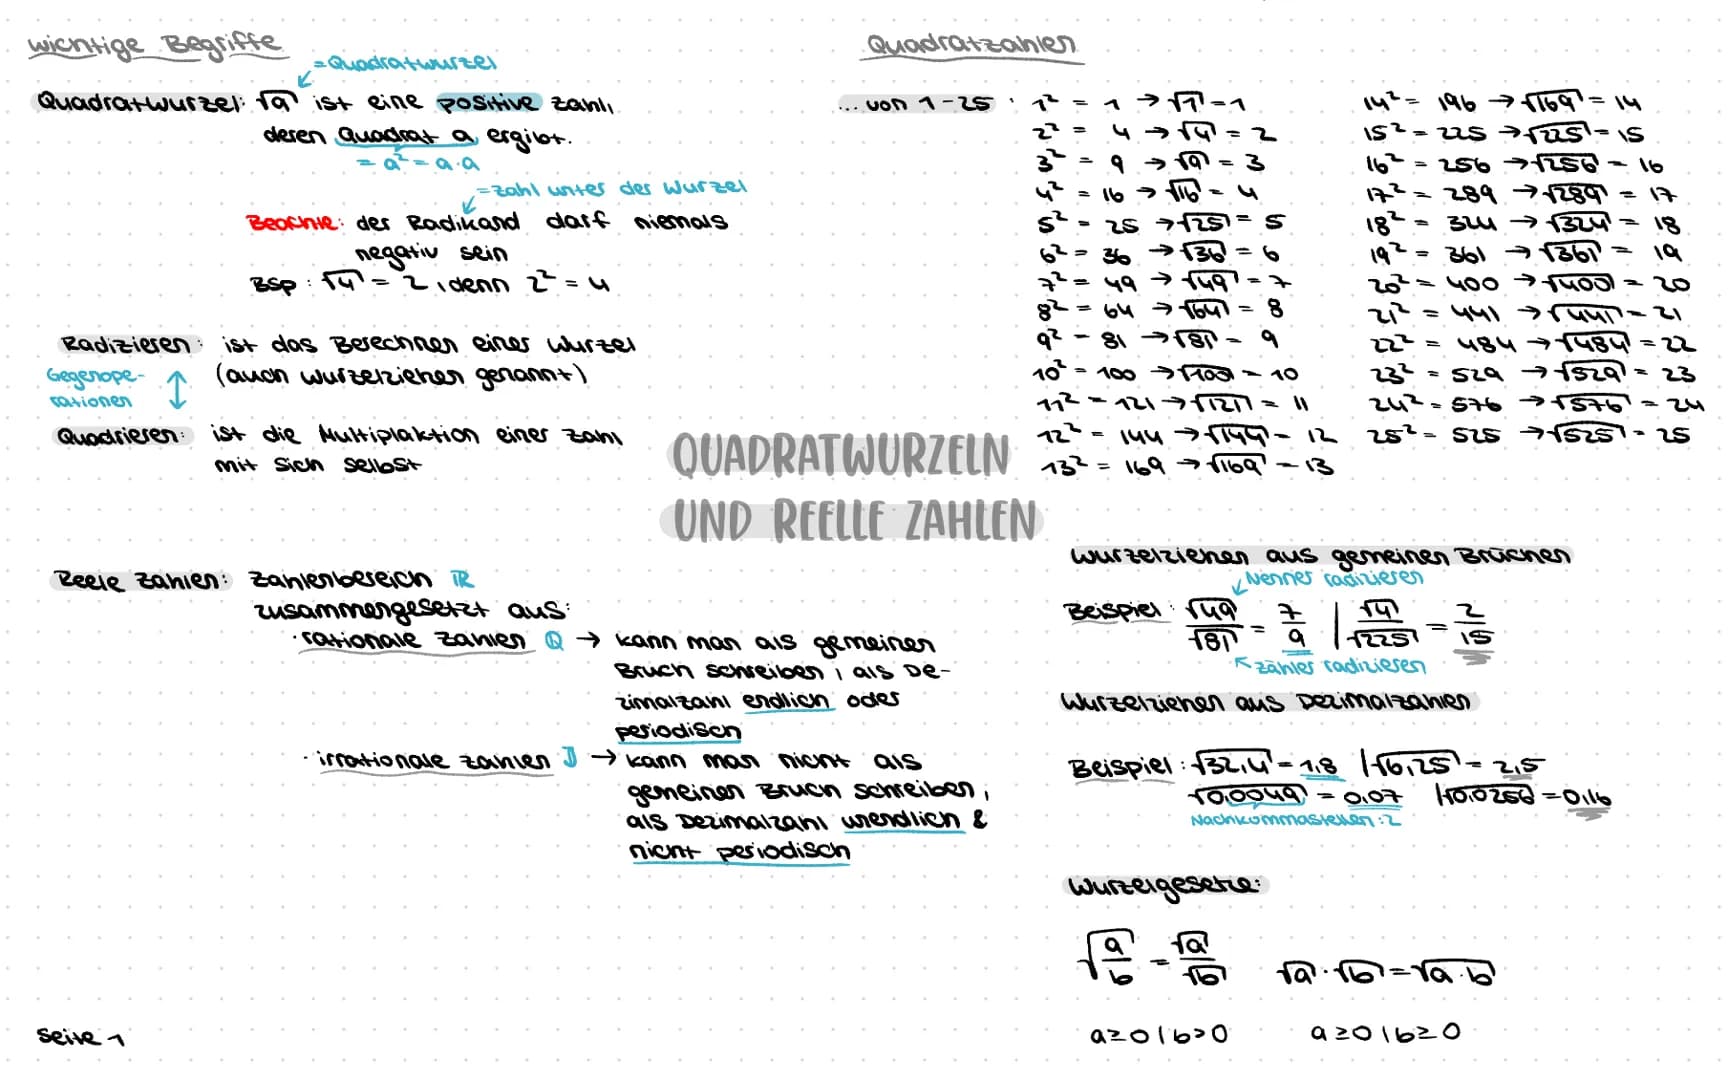 wichtige Begriffe
= Quadratwurzel
Quadratwurzel: √a ist eine positive Zahl,
deren Quadrat a ergibt.
= a² = a·a
= Zahl unter der Wurzel
Beachte: der Radikand darf niemals
negativ sein
BSP: √4 = 2, denn 2² = 4
Radizieren: ist das Berechnen einer Wurzel
(auch Wurzelziehen genannt)
Gegenope-
rationen
Quadrieren: ist die Multiplaktion einer Zahl
mit sich selbst
Quadratzahlen
... von 1-25: 1² = 1 → √1 = 1
2² = 4 → √4 = 2
3² = 9 → √9 = 3
4² = 16 → √16 = 4
5² = 25 → √25 = 5
6² = 36 → √36 = 6
7² = 49 → √49 = 7
8² = 64 → √64 = 8
9² = 81 → √81 = 9
10² = 100 → √100 = 10
11² = 121 → √121 = 11
12² = 144 → √144 = 12
13² = 169 → √169 = 13
14² = 196 → √169 = 14
15² = 225 → √225 = 15
16² = 256 → √256 = 16
17² = 289 → √289 = 17
18² = 324 → √324 = 18
19² = 361 → √361 = 19
20² = 400 → √400 = 20
21² = 441 → √441 = 21
22² = 484 → √484 = 22
23² = 529 → √529 = 23
24² = 576 → √576 = 24
25² = 525 → √525 = 25
QUADRATWURZELN
UND REELLE ZAHLEN
Reele Zahlen: Zahlenbereich ℝ
zusammengesetzt aus:
· rationale Zahlen ℚ → kann man als gemeinen
Bruch schreiben, als De-
zimalzahl endlich oder
periodisch
· irrationale Zahlen 𝕁 → kann man nicht als
gemeinen Bruch schreiben,
als Dezimalzahl unendlich &
nicht periodisch
Wurzelziehen aus gemeinen Brüchen
Nenner radizieren
Beispiel: √49/√81 = 7/9 | √4/√225 = 2/15
Zähler radizieren
Wurzelziehen aus Dezimalzahlen
Beispiel: √32,4 = 1,8 | √6,25 = 2,5
√0,0049 = 0,07 | √0,0256 = 0,16
Nachkommastellen: 2
Wurzelgesetze:
√(a/b) = √a/√b √a · √b = √(a·b)
a≥0 | b>0 a≥0 | b≥0
Seite 1